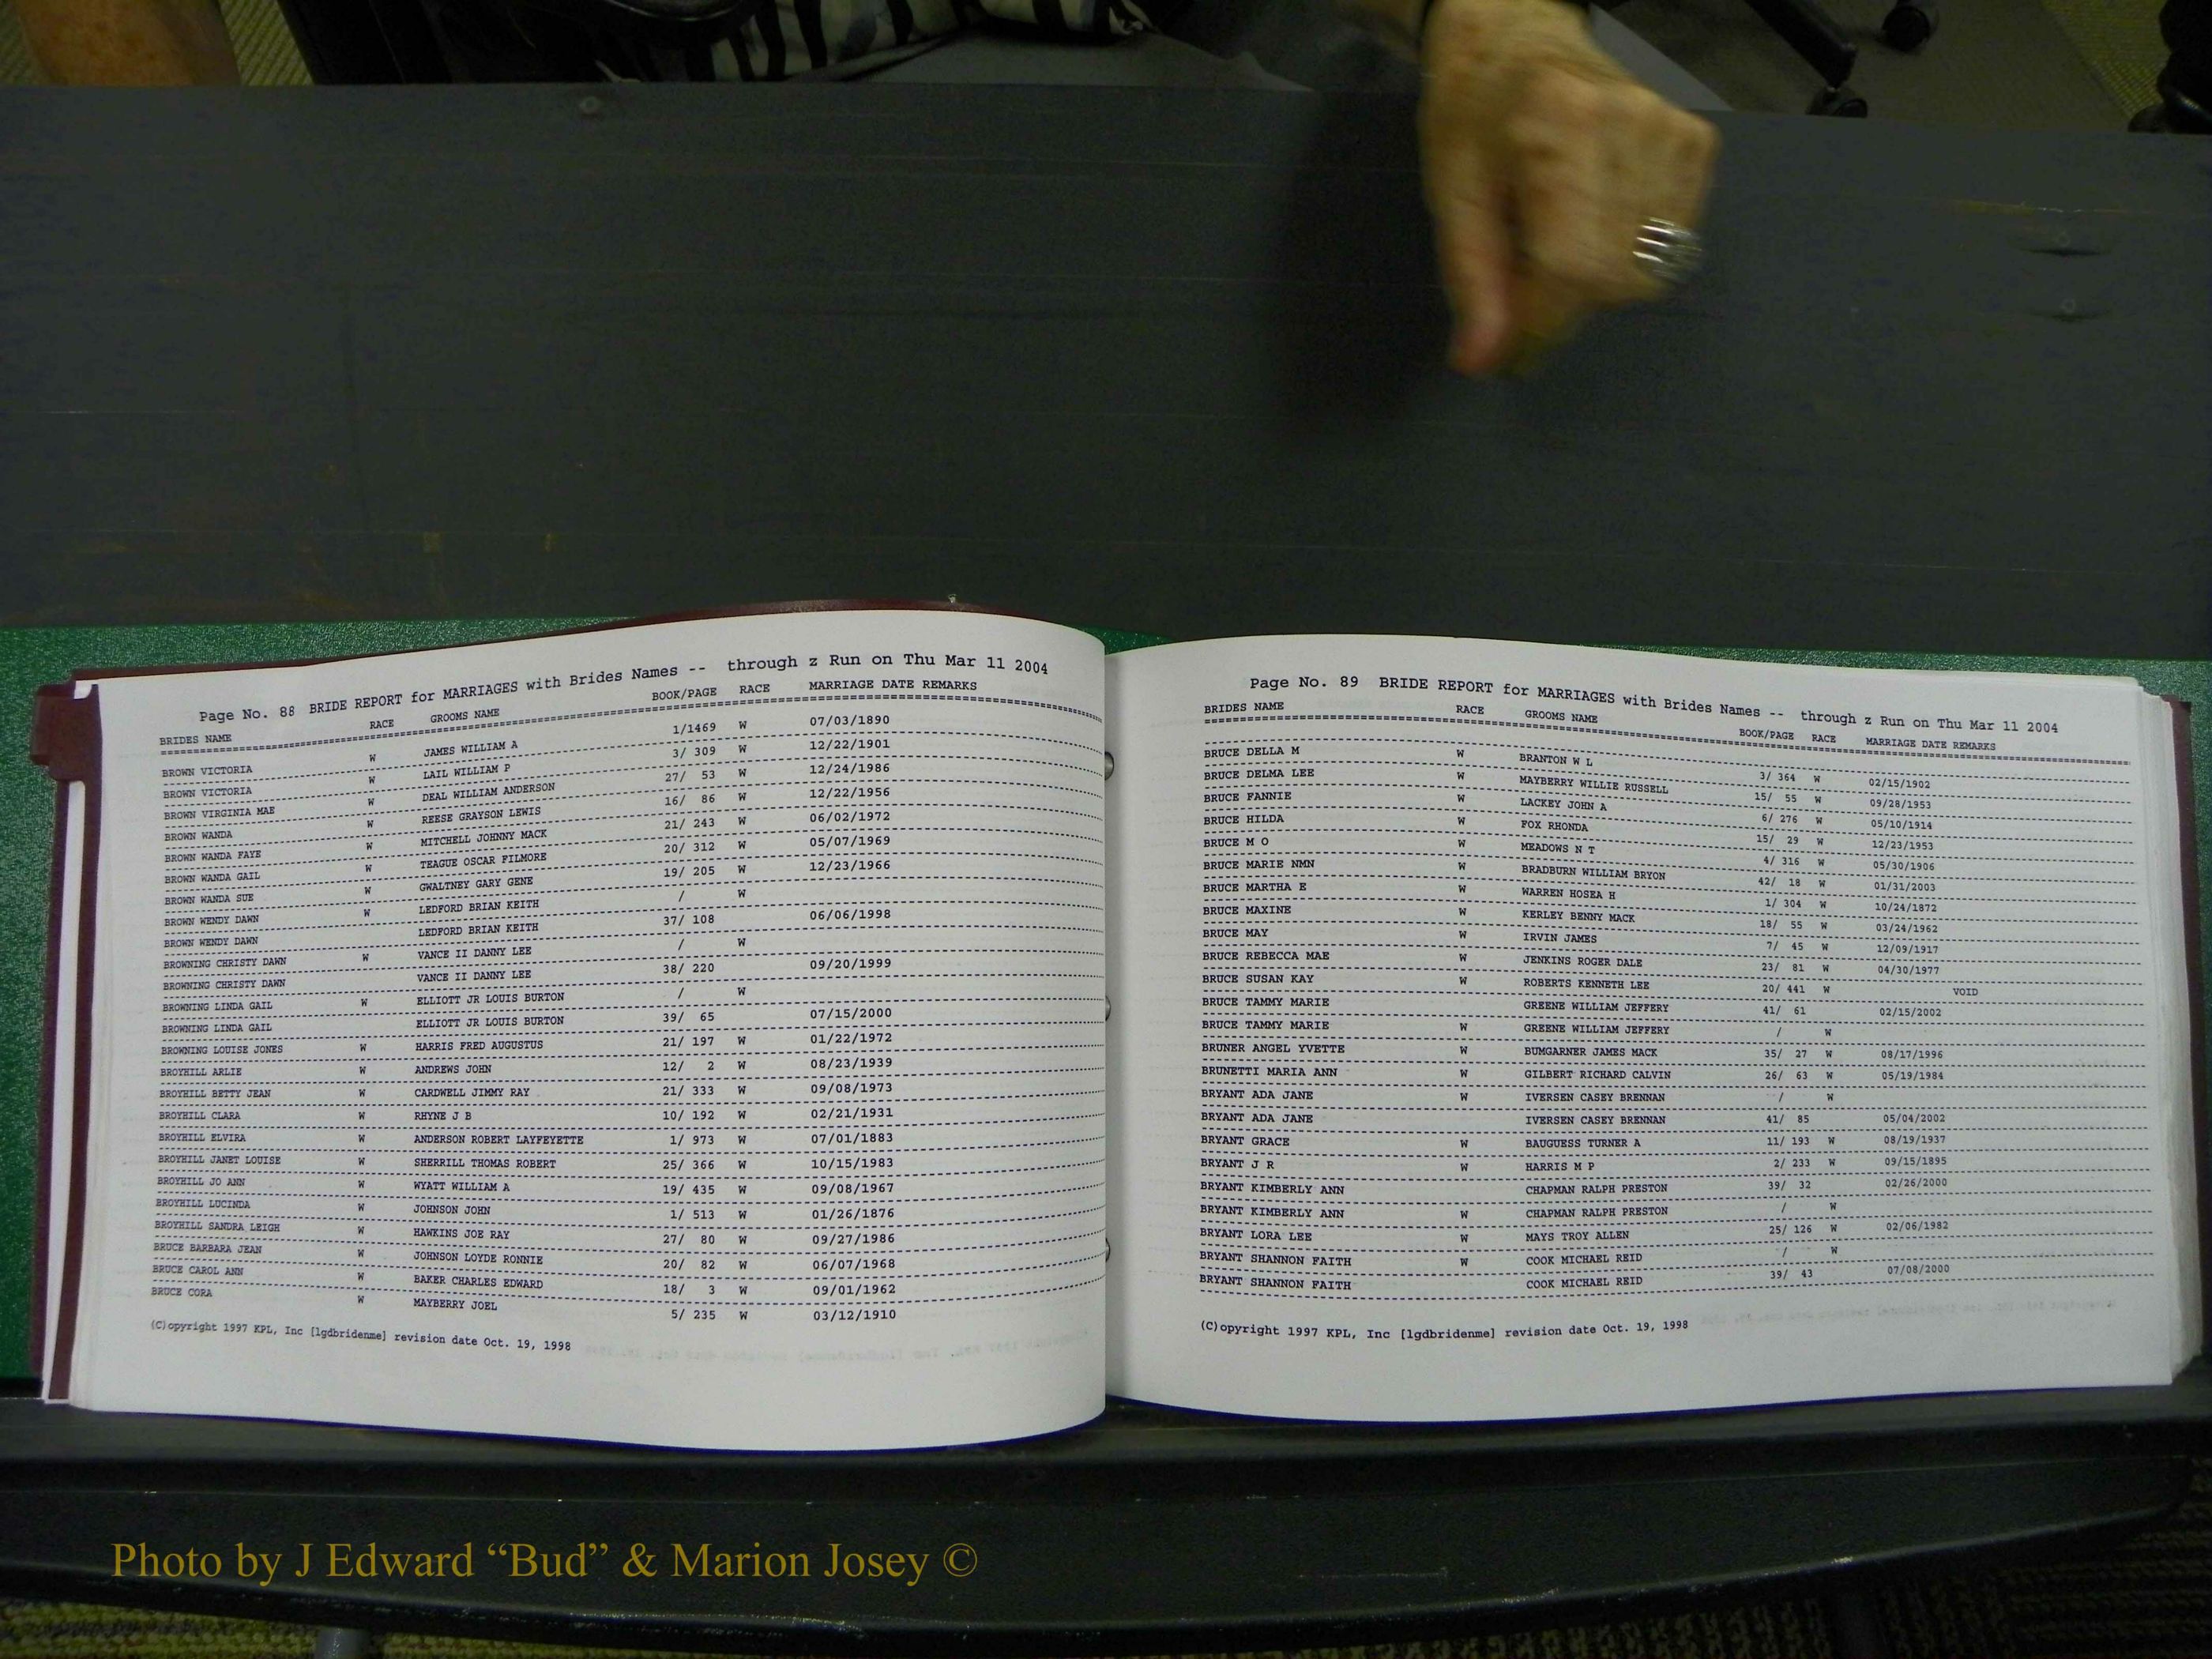 Page No. 88 BRIDE REPORT for MARRIAGES with Brides Names -- through z Run on Thu Mar 11 2004
BRIDES NAME RACE GROOMS NAME BOOK/PAGE RACE MARRIAGE DATE REMARKS
BROWN VICTORIA W JAMES WILLIAM A 1/1469 W 07/03/1890
BROWN VICTORIA W LAIL WILLIAM P 3/ 309 W 12/22/1901
BROWN VIRGINIA MAE W DEAL WILLIAM ANDERSON 27/ 53 W 12/24/1986
BROWN WANDA W REESE GRAYSON LEWIS 16/ 86 W 12/22/1956
BROWN WANDA FAYE W MITCHELL JOHNNY MACK 21/ 243 W 06/02/1972
BROWN WANDA GAIL W TEAGUE OSCAR FILMORE 20/ 312 W 05/07/1969
BROWN WANDA SUE W GWALTNEY GARY GENE 19/ 205 W 12/23/1966
BROWN WENDY DAWN W LEDFORD BRIAN KEITH / W
BROWN WENDY DAWN LEDFORD BRIAN KEITH 37/ 108 06/06/1998
BROWNING CHRISTY DAWN W VANCE II DANNY LEE / W
BROWNING CHRISTY DAWN VANCE II DANNY LEE 38/ 220 09/20/1999
BROWNING LINDA GAIL W ELLIOTT JR LOUIS BURTON / W
BROWNING LINDA GAIL ELLIOTT JR LOUIS BURTON 39/ 65 07/15/2000
BROWNING LOUISE JONES W HARRIS FRED AUGUSTUS 21/ 197 W 01/22/1972
BROYHILL ARLIE W ANDREWS JOHN 12/ 2 W 08/23/1939
BROYHILL BETTY JEAN W CARDWELL JIMMY RAY 21/ 333 W 09/08/1973
BROYHILL CLARA W RHYNE J B 10/ 192 W 02/21/1931
BROYHILL ELVIRA W ANDERSON ROBERT LAYFEYETTE 1/ 973 W 07/01/1883
BROYHILL JANET LOUISE W SHERRILL THOMAS ROBERT 25/ 366 W 10/15/1983
BROYHILL JO ANN W WYATT WILLIAM A 19/ 435 W 09/08/1967
BROYHILL LUCINDA W JOHNSON JOHN 1/ 513 W 01/26/1876
BROYHILL SANDRA LEIGH W HAWKINS JOE RAY 27/ 80 W 09/27/1986
BRUCE BARBARA JEAN W JOHNSON LOYDE RONNIE 20/ 82 W 06/07/1968
BRUCE CAROL ANN W BAKER CHARLES EDWARD 18/ 3 W 09/01/1962
BRUCE CORA W MAYBERRY JOEL 5/ 235 W 03/12/1910
(C)opyright 1997 KPL, Inc [lgdbridenme] revision date Oct. 19, 1998
Page No. 89 BRIDE REPORT for MARRIAGES with Brides Names -- through z Run on Thu Mar 11 2004
BRIDES NAME RACE GROOMS NAME BOOK/PAGE RACE MARRIAGE DATE REMARKS
BRUCE DELLA M W BRANTON W L 3/ 364 W 02/15/1902
BRUCE DELMA LEE W MAYBERRY WILLIE RUSSELL 15/ 55 W 09/28/1953
BRUCE FANNIE W LACKEY JOHN A 6/ 276 W 05/10/1914
BRUCE HILDA W FOX RHONDA 15/ 29 W 12/23/1953
BRUCE M O W MEADOWS N T 4/ 316 W 05/30/1906
BRUCE MARIE NMN W BRADBURN WILLIAM BRYON 42/ 18 W 01/31/2003
BRUCE MARTHA E W WARREN HOSEA H 1/ 304 W 10/24/1872
BRUCE MAXINE W KERLEY BENNY MACK 18/ 55 W 03/24/1962
BRUCE MAY W IRVIN JAMES 7/ 45 W 12/09/1917
BRUCE REBECCA MAE W JENKINS ROGER DALE 23/ 81 W 04/30/1977
BRUCE SUSAN KAY W ROBERTS KENNETH LEE 20/ 441 W VOID
BRUCE TAMMY MARIE GREENE WILLIAM JEFFERY 41/ 61 02/15/2002
BRUCE TAMMY MARIE W GREENE WILLIAM JEFFERY / W
BRUNER ANGEL YVETTE W BUMGARNER JAMES MACK 35/ 27 W 08/17/1996
BRUNETTI MARIA ANN W GILBERT RICHARD CALVIN 26/ 63 W 05/19/1984
BRYANT ADA JANE W IVERSEN CASEY BRENNAN / W
BRYANT ADA JANE IVERSEN CASEY BRENNAN 41/ 85 05/04/2002
BRYANT GRACE W BAUGUESS TURNER A 11/ 193 W 08/19/1937
BRYANT J R W HARRIS M P 2/ 233 W 09/15/1895
BRYANT KIMBERLY ANN CHAPMAN RALPH PRESTON 39/ 32 02/26/2000
BRYANT KIMBERLY ANN W CHAPMAN RALPH PRESTON / W
BRYANT LORA LEE W MAYS TROY ALLEN 25/ 126 W 02/06/1982
BRYANT SHANNON FAITH W COOK MICHAEL REID / W
BRYANT SHANNON FAITH COOK MICHAEL REID 39/ 43 07/08/2000
(C)opyright 1997 KPL, Inc [lgdbridenme] revision date Oct. 19, 1998
Photo by J Edward “Bud” & Marion Josey ©